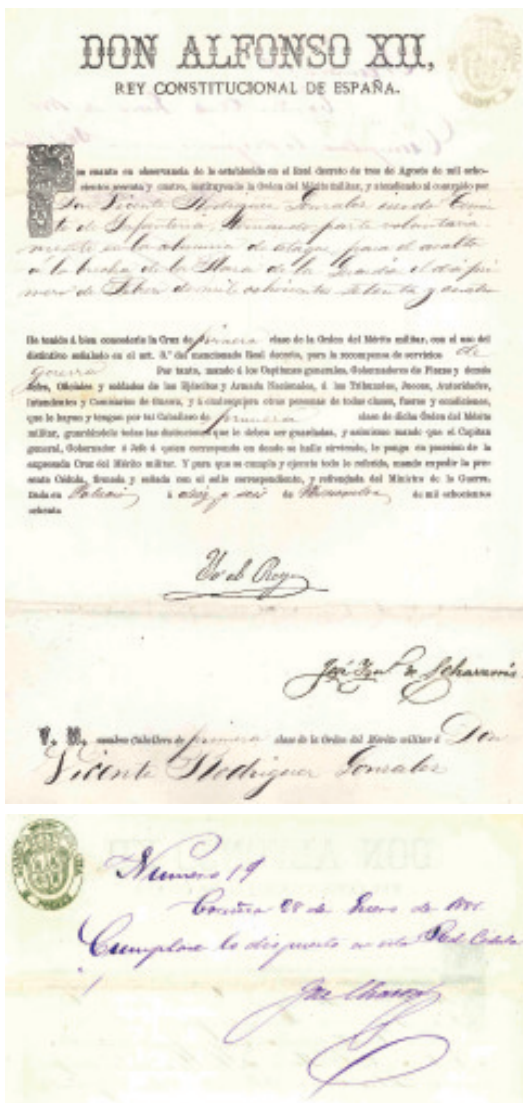 DON ALFONSO XII,
REY CONSTITUCIONAL DE ESPAÑA.
Por cuanto en observancia de lo establecido en el Real decreto de tres de Agosto de mil ocho-
cientos sesenta y cuatro, instituyendo la Orden del Mérito militar, y atendiendo al contraido por
Don Vicente Rodriguez Gonzalez siendo Tenien
te de Infanteria, formando parte voluntaria
mente en la columna de ataque para el asalto
á la brecha de la Plaza de la Guardia el dia pri
mero de de mil ochocientos setenta y cuatro
He tenido á bien concederle la Cruz de primera clase de la Orden del Mérito militar, con el uso del
distintivo señalado en el art. 3.º del mencionado Real decreto, para la recompensa de servicios de
guerra Por tanto, mando á los Capitanes generales, Gobernadores de Plazas y demás
Jefes, Oficiales y soldados de los Ejércitos y Armada Nacionales, á los Tribunales, Jueces, Autoridades,
Intendentes y Comisarios de Guerra, y á cualesquiera otras personas de todas clases, fueros y condiciones,
que le hayan y tengan por tal Caballero de primera clase de dicha Orden del Mérito
militar, guardándole todas las distinciones que le deben ser guardadas, y asimismo mando que el Capitan
general, Gobernador ó Jefe á quien corresponda en donde se halle sirviendo, le ponga en posesion de la
expresada Cruz del Mérito militar. Y para que se cumpla y ejecute todo lo referido, mando expedir la pre-
sente Cédula, firmada y sellada con el sello correspondiente, y refrendada del Ministro de la Guerra.
Dada en Palacio á diez y seis de Noviembre de mil ochocientos
ochenta
Yo el Rey
José de
V. M. nombra Caballero de primera clase de la Orden del Mérito militar á Don
Vicente Rodriguez Gonzalez
Numero 19
Coruña 28 de Enero de
Cumplase lo dispuesto en esta Real Cedula